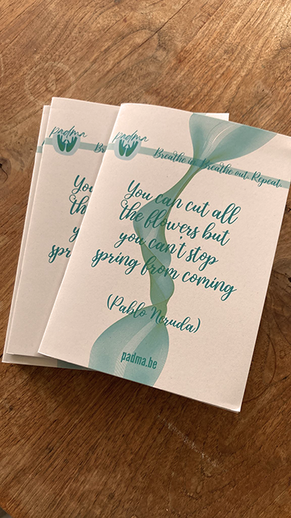 padma
Breathe in Breathe out Repeat
You can cut all
the flowers but
you can't stop
spring from coming
(Pablo Neruda)
padma.be
padma
B
You
th
y
spr